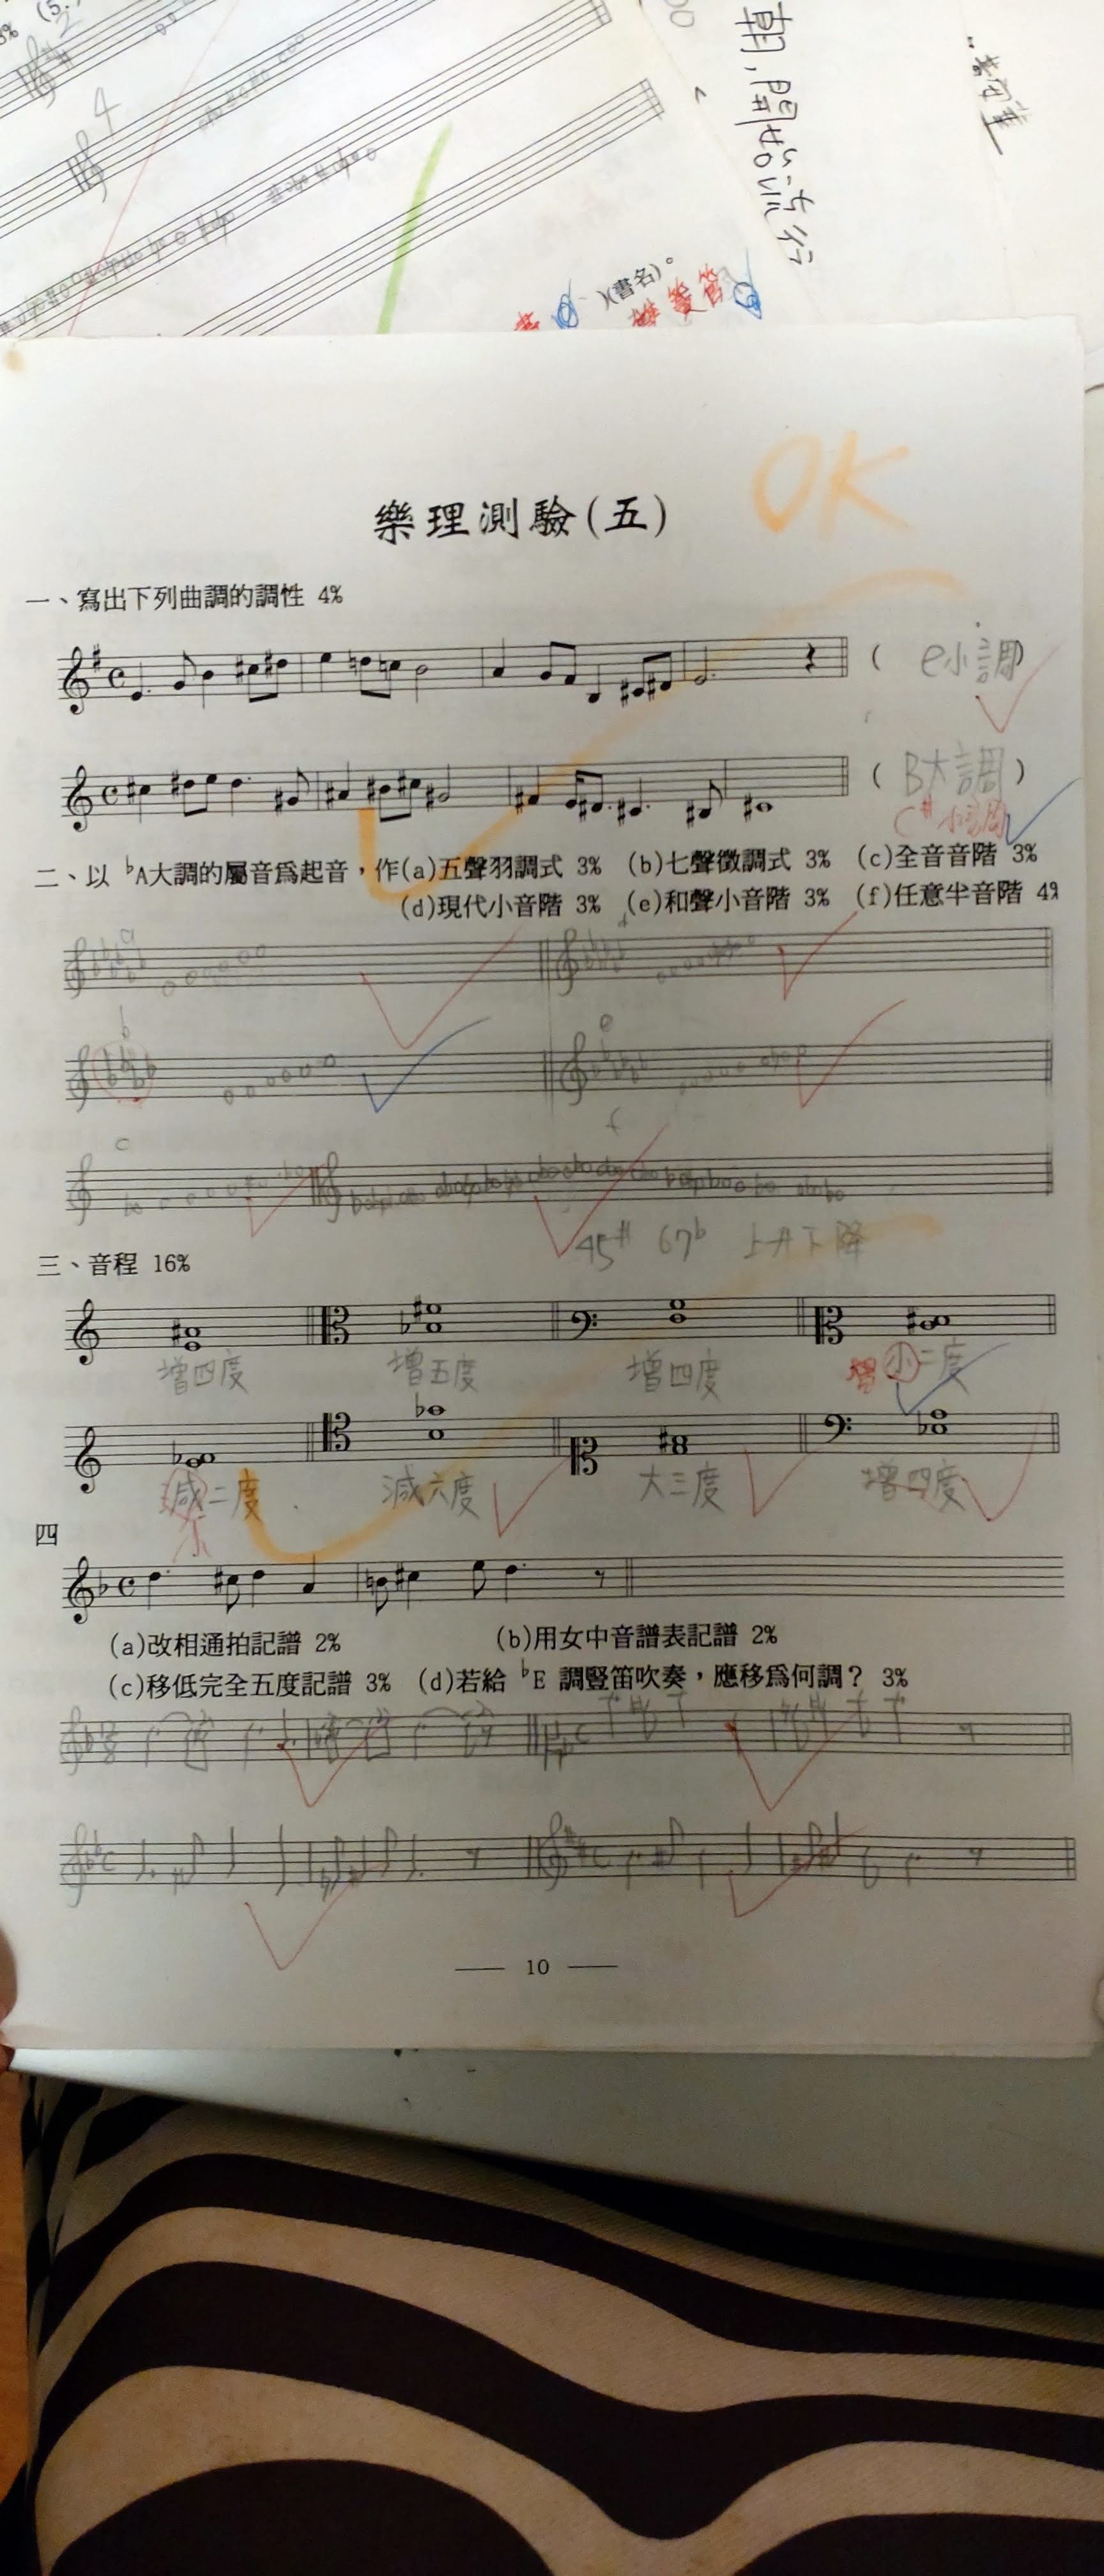 朝,開始流行
)(書名)。
OK
樂理測驗(五)
一、寫出下列曲調的調性 4%
( e小調 )
( B大調 )
C#小調
二、以 ♭A大調的屬音爲起音,作(a)五聲羽調式 3% (b)七聲徵調式 3% (c)全音音階 3%
(d)現代小音階 3% (e)和聲小音階 3% (f)任意半音階 4%
a
b e
c f
45# 67♭ 上升下降
三、音程 16%
增四度 增五度 增四度 增 小二度
減二度 減六度 大三度 增四度
小
四
(a)改相通拍記譜 2% (b)用女中音譜表記譜 2%
(c)移低完全五度記譜 3% (d)若給 ♭E 調豎笛吹奏,應移爲何調? 3%
10